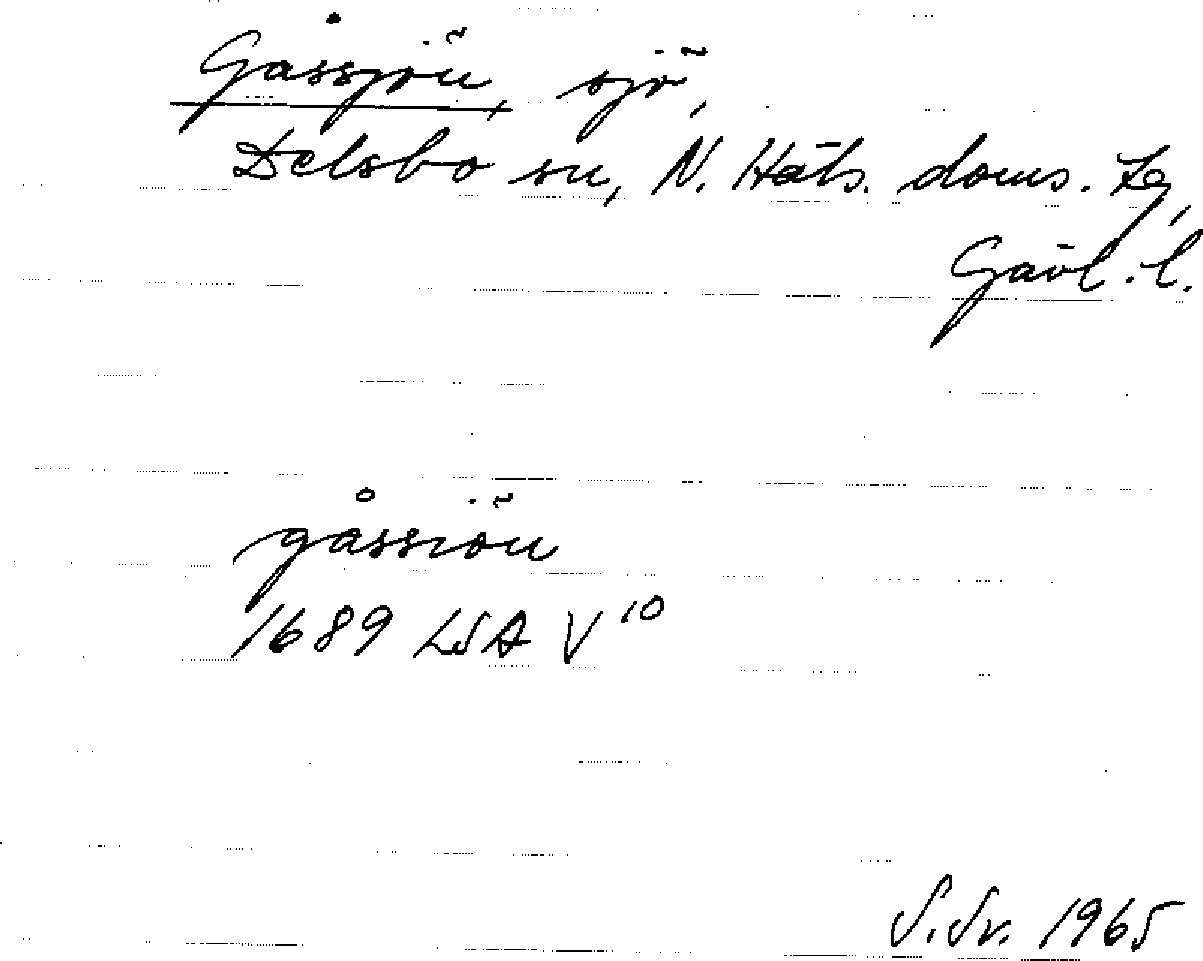 Gåssjön, sjö,
Delsbo sn, N. Häls. doms. Lg,
Gävl. l.
gåssiön
1689 LSA V 10
S.Sv. 1965